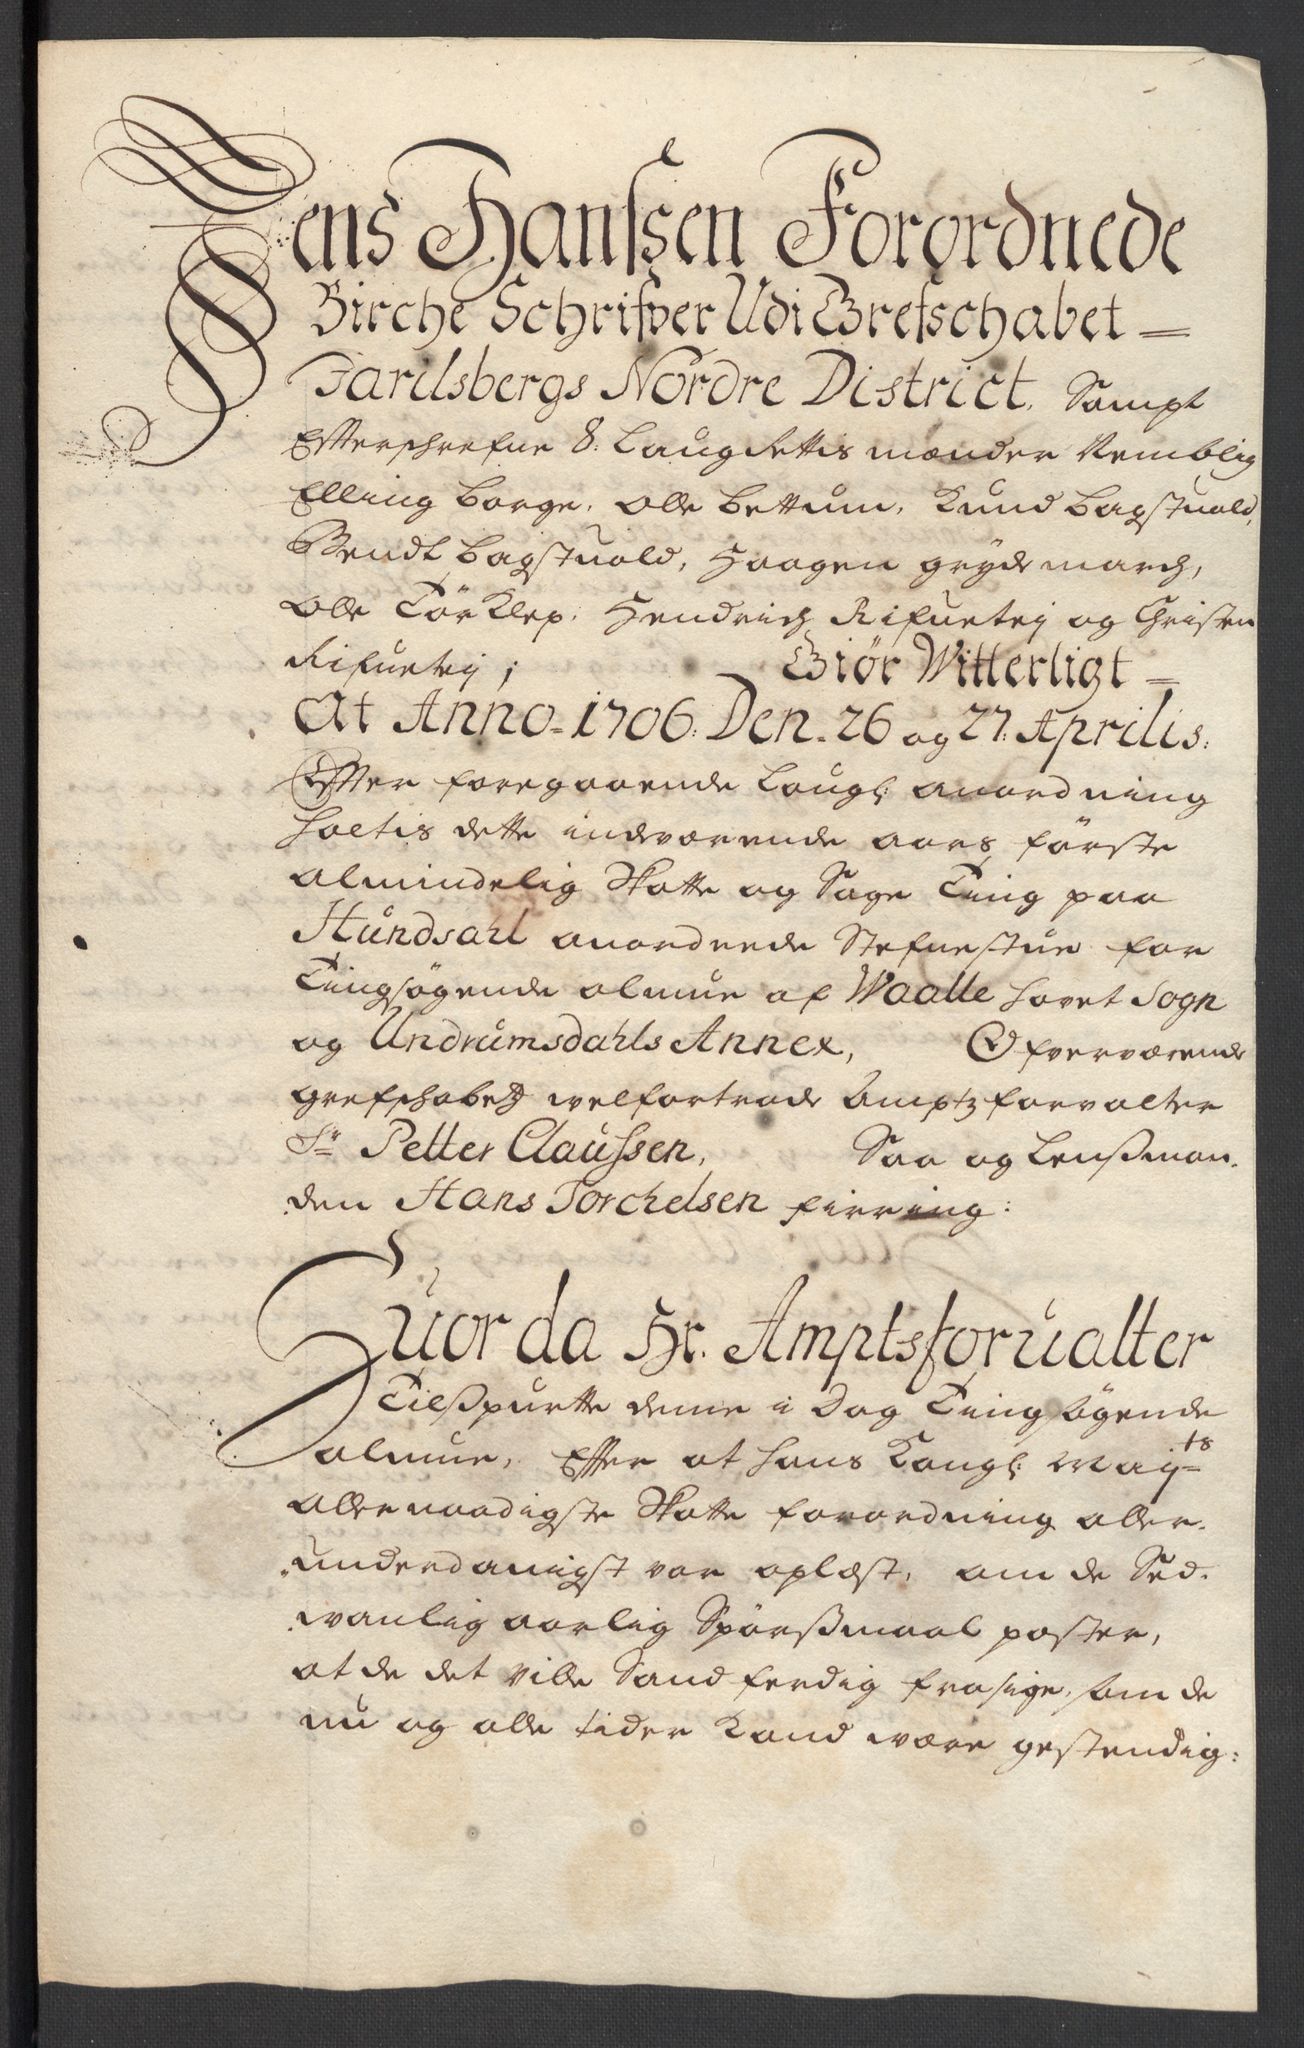 Jens Hanssen Forordnede
Birche Schrifver Udi Grefschabet =
Jarilsbergs Nordre District, Sampt
Effterschrefne 8: Laugrettis mænder Nemblig
Elling Borge, Olle Bettum, Knud Bagstuold,
Bendt Bagstuold, Haagen grydemarch,
Olle Tør Klep, Hendrich Rifuetej og Christen
Rifuetej; Giør Witterligt =
At Anno = 1706. Den. 26 og 27. Aprilis:
Effter foregaaende Laugl: anordning
holtis dette indværende aars første
almindelig Skatte og Sage Ting paa
Hundsahl anordnede Stefnestue for
Tingsøgende almue af Waalle hovet Sogn
og Undrumsdahls Annex, Ofverværende
grefschabetz welfortrode Amptz forvalter
Sr Petter Claussen, Saa og Lenssman-
den Hans Torchelsen firring:
Huor da Hr. Amptsforualter
Tilsspurtte denne i Dag Tingsøgende
almue, Effter at hans Kongl: Mayts
allernaadigste Skatte forordning aller-
underdanigst var oplæst, om de Sed-
vanlig aarlig Spørssmaal poster,
at de det ville Sandferdig frasige, som de
nu og alle tider Kand være gestendig: